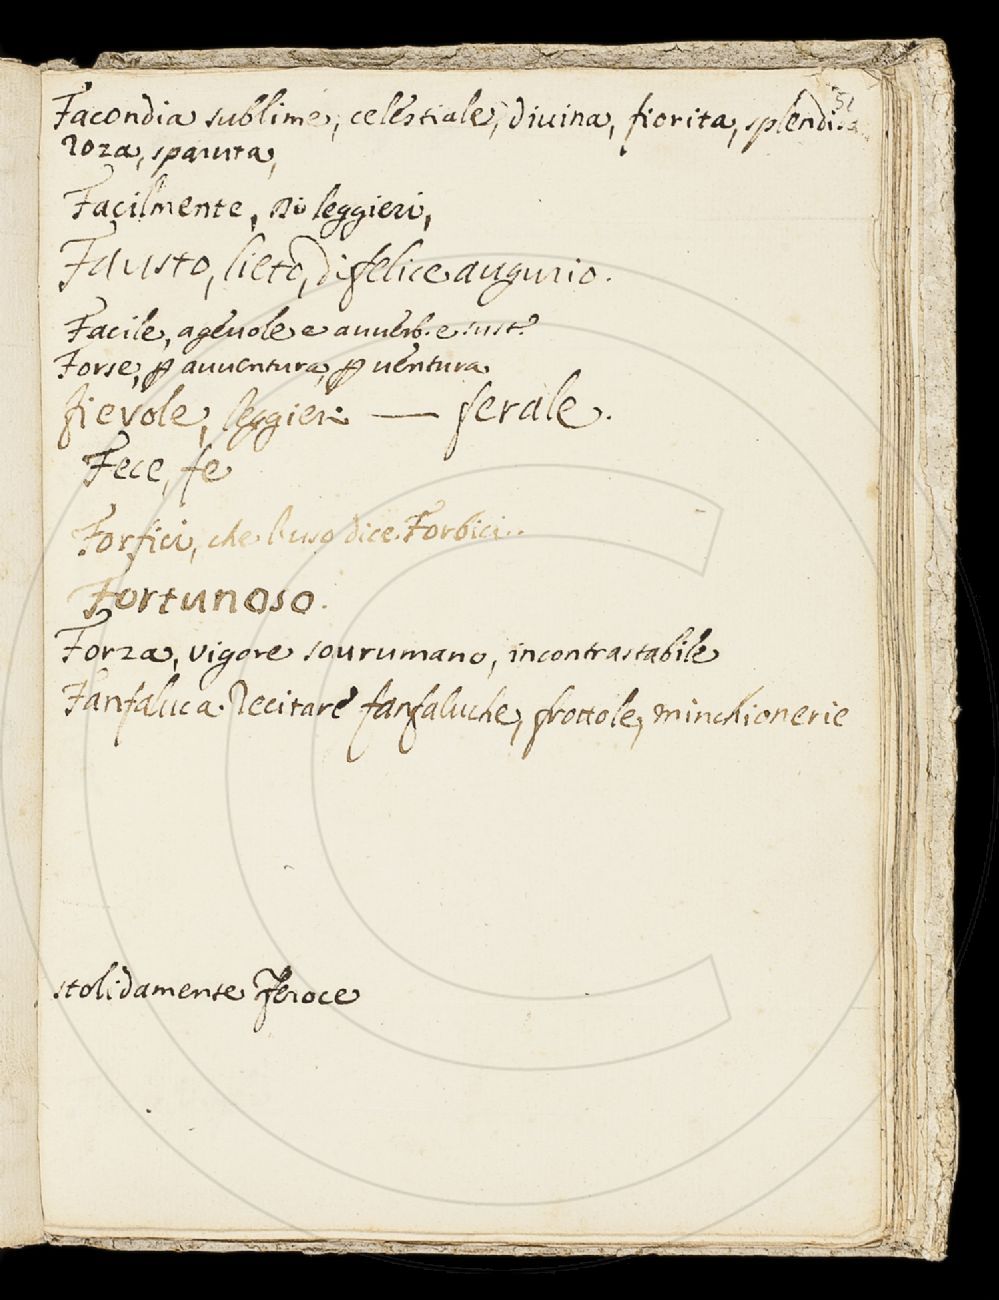 51
Facondia sublime, celestiale, diuina, fiorita, splendida,
roza, sparuta,
Facilmente, di leggieri,
Fausto, lieto, di felice augurio.
Facile, ageuole e auuerb. e sust.
Forse, ꝑ auuentura, ꝑ uentura
fievole, leggieri — ferale.
Fece, fe
Forfici, che l'uso dice Forbici..
Fortunoso.
Forza, vigore sourumano, incontrastabile
Fanfaluca. Recitare fanfaluche, frottole, minchionerie
stolidamente feroce